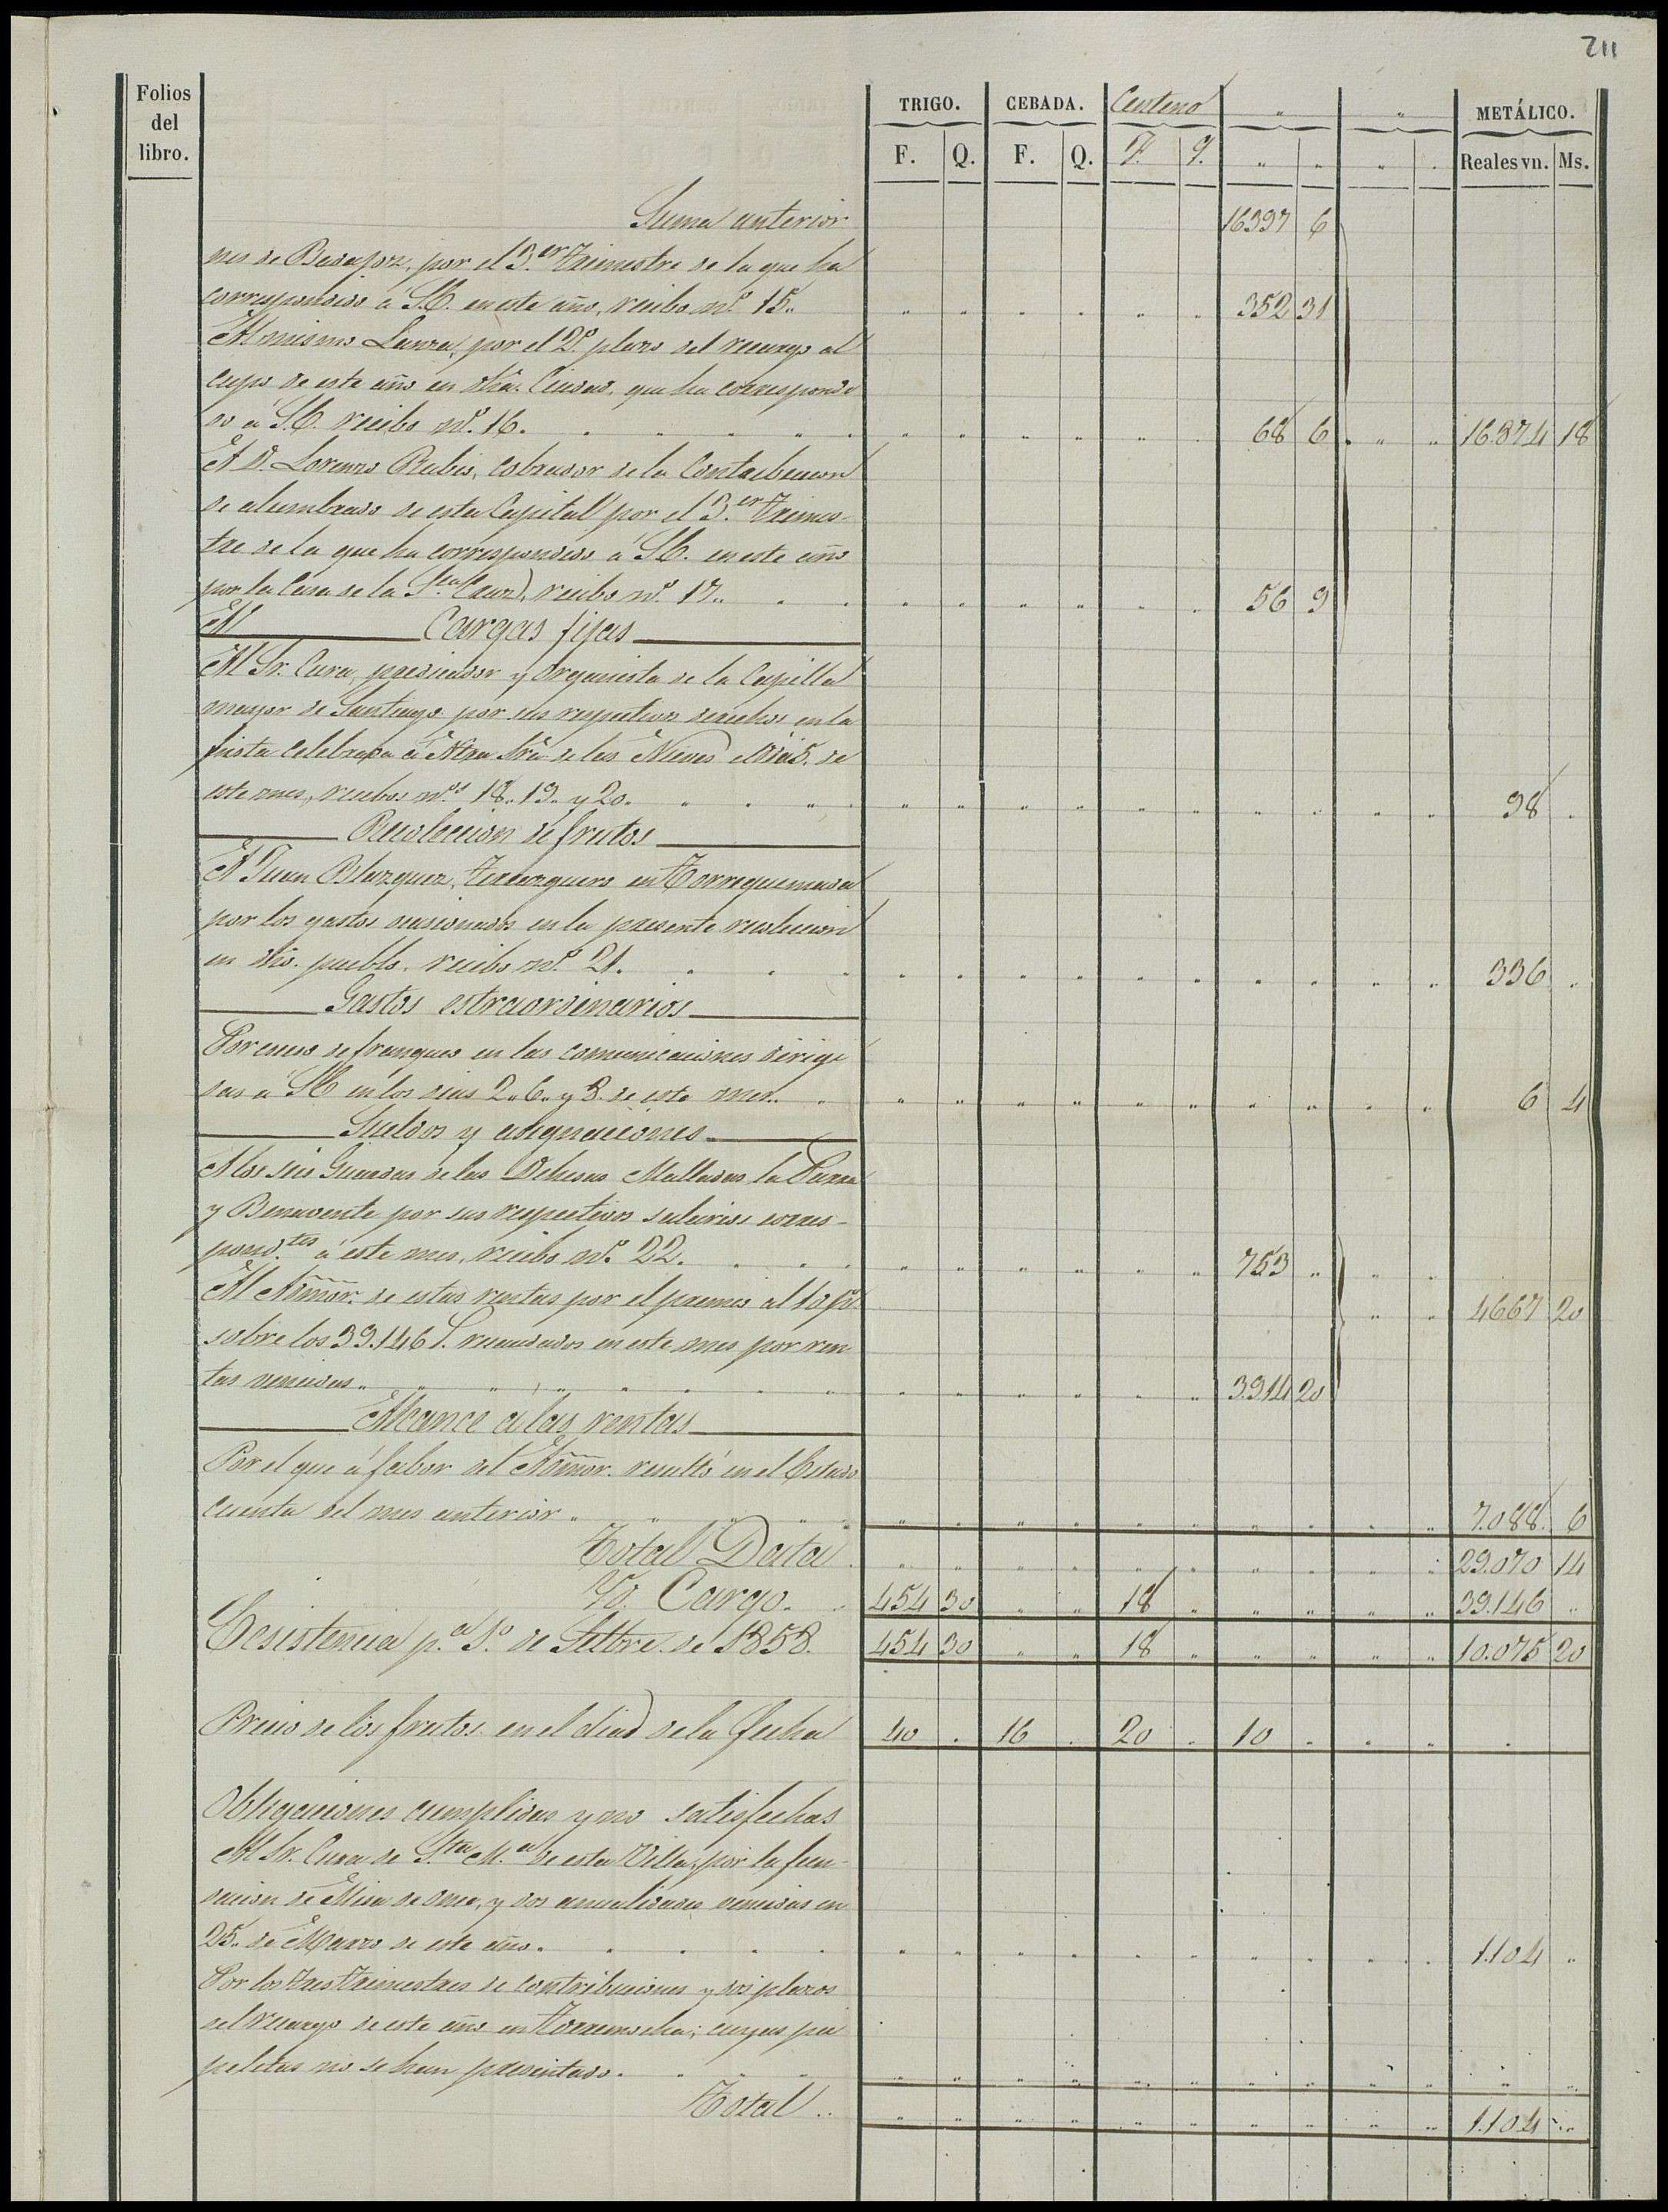 211
Folios
del
libro.
TRIGO. CEBADA. Centeno " " METÁLICO.
F. Q. F. Q. F. Q. " " " " Reales vn. Ms.
Suma anterior 16397 6
nes de Badajoz, por el 3.er trimestre de la que ha
correspondido á S.E. en este año, recibo nº. 15.. " " " " " " 352 31
Al mismo Lanza, por el 2º. plazo del recargo al
cupo de este año en dha. Ciudad, que ha correspondi
do á S.E. recibo nº. 16. " " " " " " 68 6 " " 16.874 18
A D. Lorenzo Rubio, cobrador de la Contribucion
de alumbrado de esta Capital por el 3.er trimes-
tre de la que ha correspondido á S.E. en este año
por la Casa de la Sta. Cruz, recibo nº. 17.. " " " " " " 56 9
Al Cargas fijas
Al Sr. Cura, predicador y Organista de la Capilla
mayor de Santiago por sus respectivos derechos en la
fiesta celebrada á Ntra Sra. de las Nieves el dia 5. de
este mes, recibos nos. 18.. 19.. y 20. " " " " " " " " " " 98 "
Recoleccion de frutos
A Juan Blazquez, tercazguero en Torrequemada
por los gastos ocasionados en la presente recoleccion
en dho. pueblo, recibo nº. 21. " " " " " " " " " " 336 "
Gastos estraordinarios
Por curso de franqueo en las comunicaciones dirigi
das á S.E. en los dias 2.. 6.. y 8. de este mes.. " " " " " " " " " " 6 4
Sueldos y asignaciones
A los seis Guardas de las Dehesas Malladas, la Parra
y Benavente por sus respectivos salarios corres-
pond.tes á este mes, recibo nº. 22. " " " " " " 753 " " "
Al Admor. de estas rentas por el premio al 10 p%. " " 4667 20
sobre los 39.146 r. recaudados en este mes por ren
tas vencidas.. " " " " " " 3.914 20
Alcance a las rentas
Por el que á fabor del Admor. resultó en el Estado
Cuenta del mes anterior.. " " " " " " " " " " 7.088 6
Total Data. " " " " " " " " " " 29.070 14
Yd. Cargo. 454 30 " " 18 " " " " " 39.146 "
Ecsistencia p.a 1º de Settre. de 1858. 454 30 " " 18 " " " " " 10.075 20
Precio de los frutos en el dia de la fecha 40 " 16 " 20 " 10 " " " "
Obligaciones cumplidas y no satisfechas
Al Sr. Cura de Sta. M.a de esta Villa, por la fun-
dacion de Misa de once, y dos anualidades vencidas en
25.. de Marzo de este año. " " " " " " " " " " 1.104 "
Por los tres trimestres de contribuciones y dos plazos
del recargo de este año en Torremocha; cuyas pa
peletas no se han presentado. " " " " " " " " " " " "
Total.. " " " " " " " " " " 1.104 "